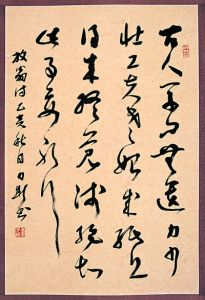 古人學問無遺力少
壯工夫老始成紙上
得來終覺淺絕知
此事要躬行
放翁詩乙亥秋月書